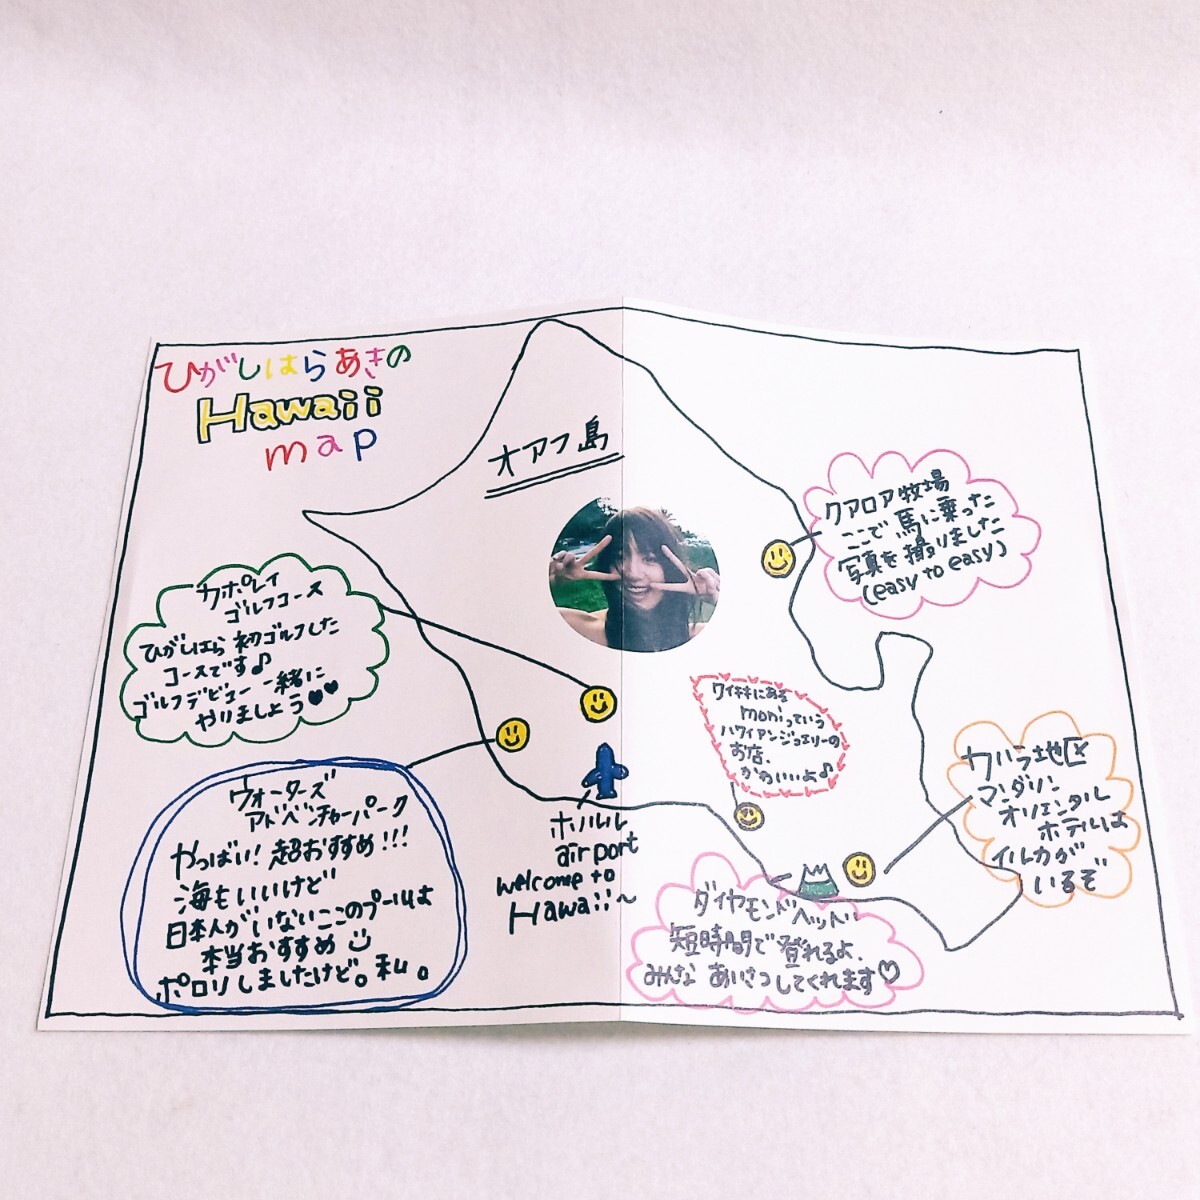 ひがしはらあきの
Hawaii
map
オアフ島
クアロア牧場
ここで馬に乗った
写真を撮りました
(easy to easy)
カポレイ
ゴルフコース
ひがしはら初ゴルフした
コースです♪
ゴルフデビュー一緒に
やりましょう♥♥
ワイキキにある
moniっていう
ハワイアンジュエリーの
お店、
かわいいよ♪
カハラ地区
マンダリン
オリエンタル
ホテルは
イルカが
いるぞ
ウォーターズ
アドベンチャーパーク
やっばい!超おすすめ!!!
海もいいけど
日本人がいないここのプールは
本当おすすめ
ポロリしましたけど。私。
ホノルル
airport
welcome to
Hawaii~
ダイヤモンドヘッド
短時間で登れるよ、
みんなあいさつしてくれます♡